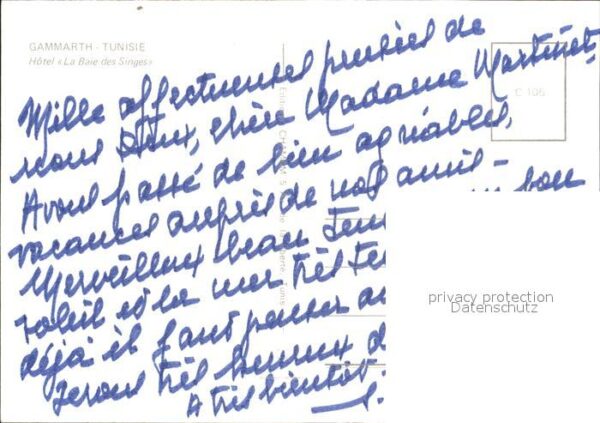 GAMMARTH - TUNISIE
Hôtel «La Baie des Singes»
C 105
Mille affectueuses pensées de
nous deux, chère Madame Martinet
Avons passé de bien agréables
vacances auprès de nos amis -
Merveilleux beau bon
soleil et la mer très
déjà il faut penser
Serons très heureux
A très bientôt
privacy protection
Datenschutz